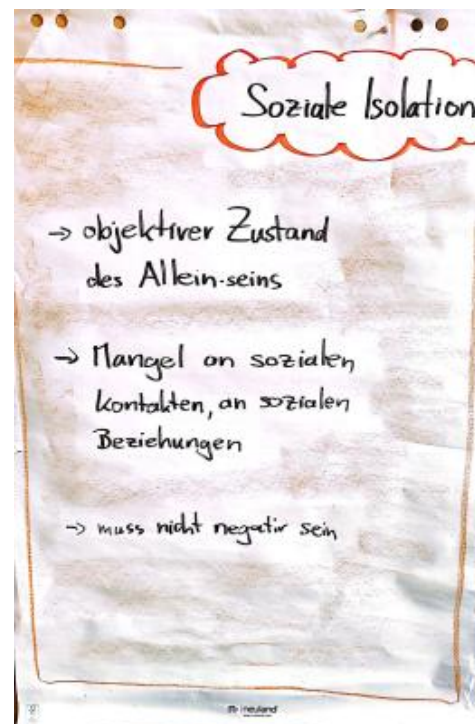 Soziale Isolation
→ objektiver Zustand
des Allein-seins
→ Mangel an sozialen
Kontakten, an sozialen
Beziehungen
→ muss nicht negativ sein
neuland